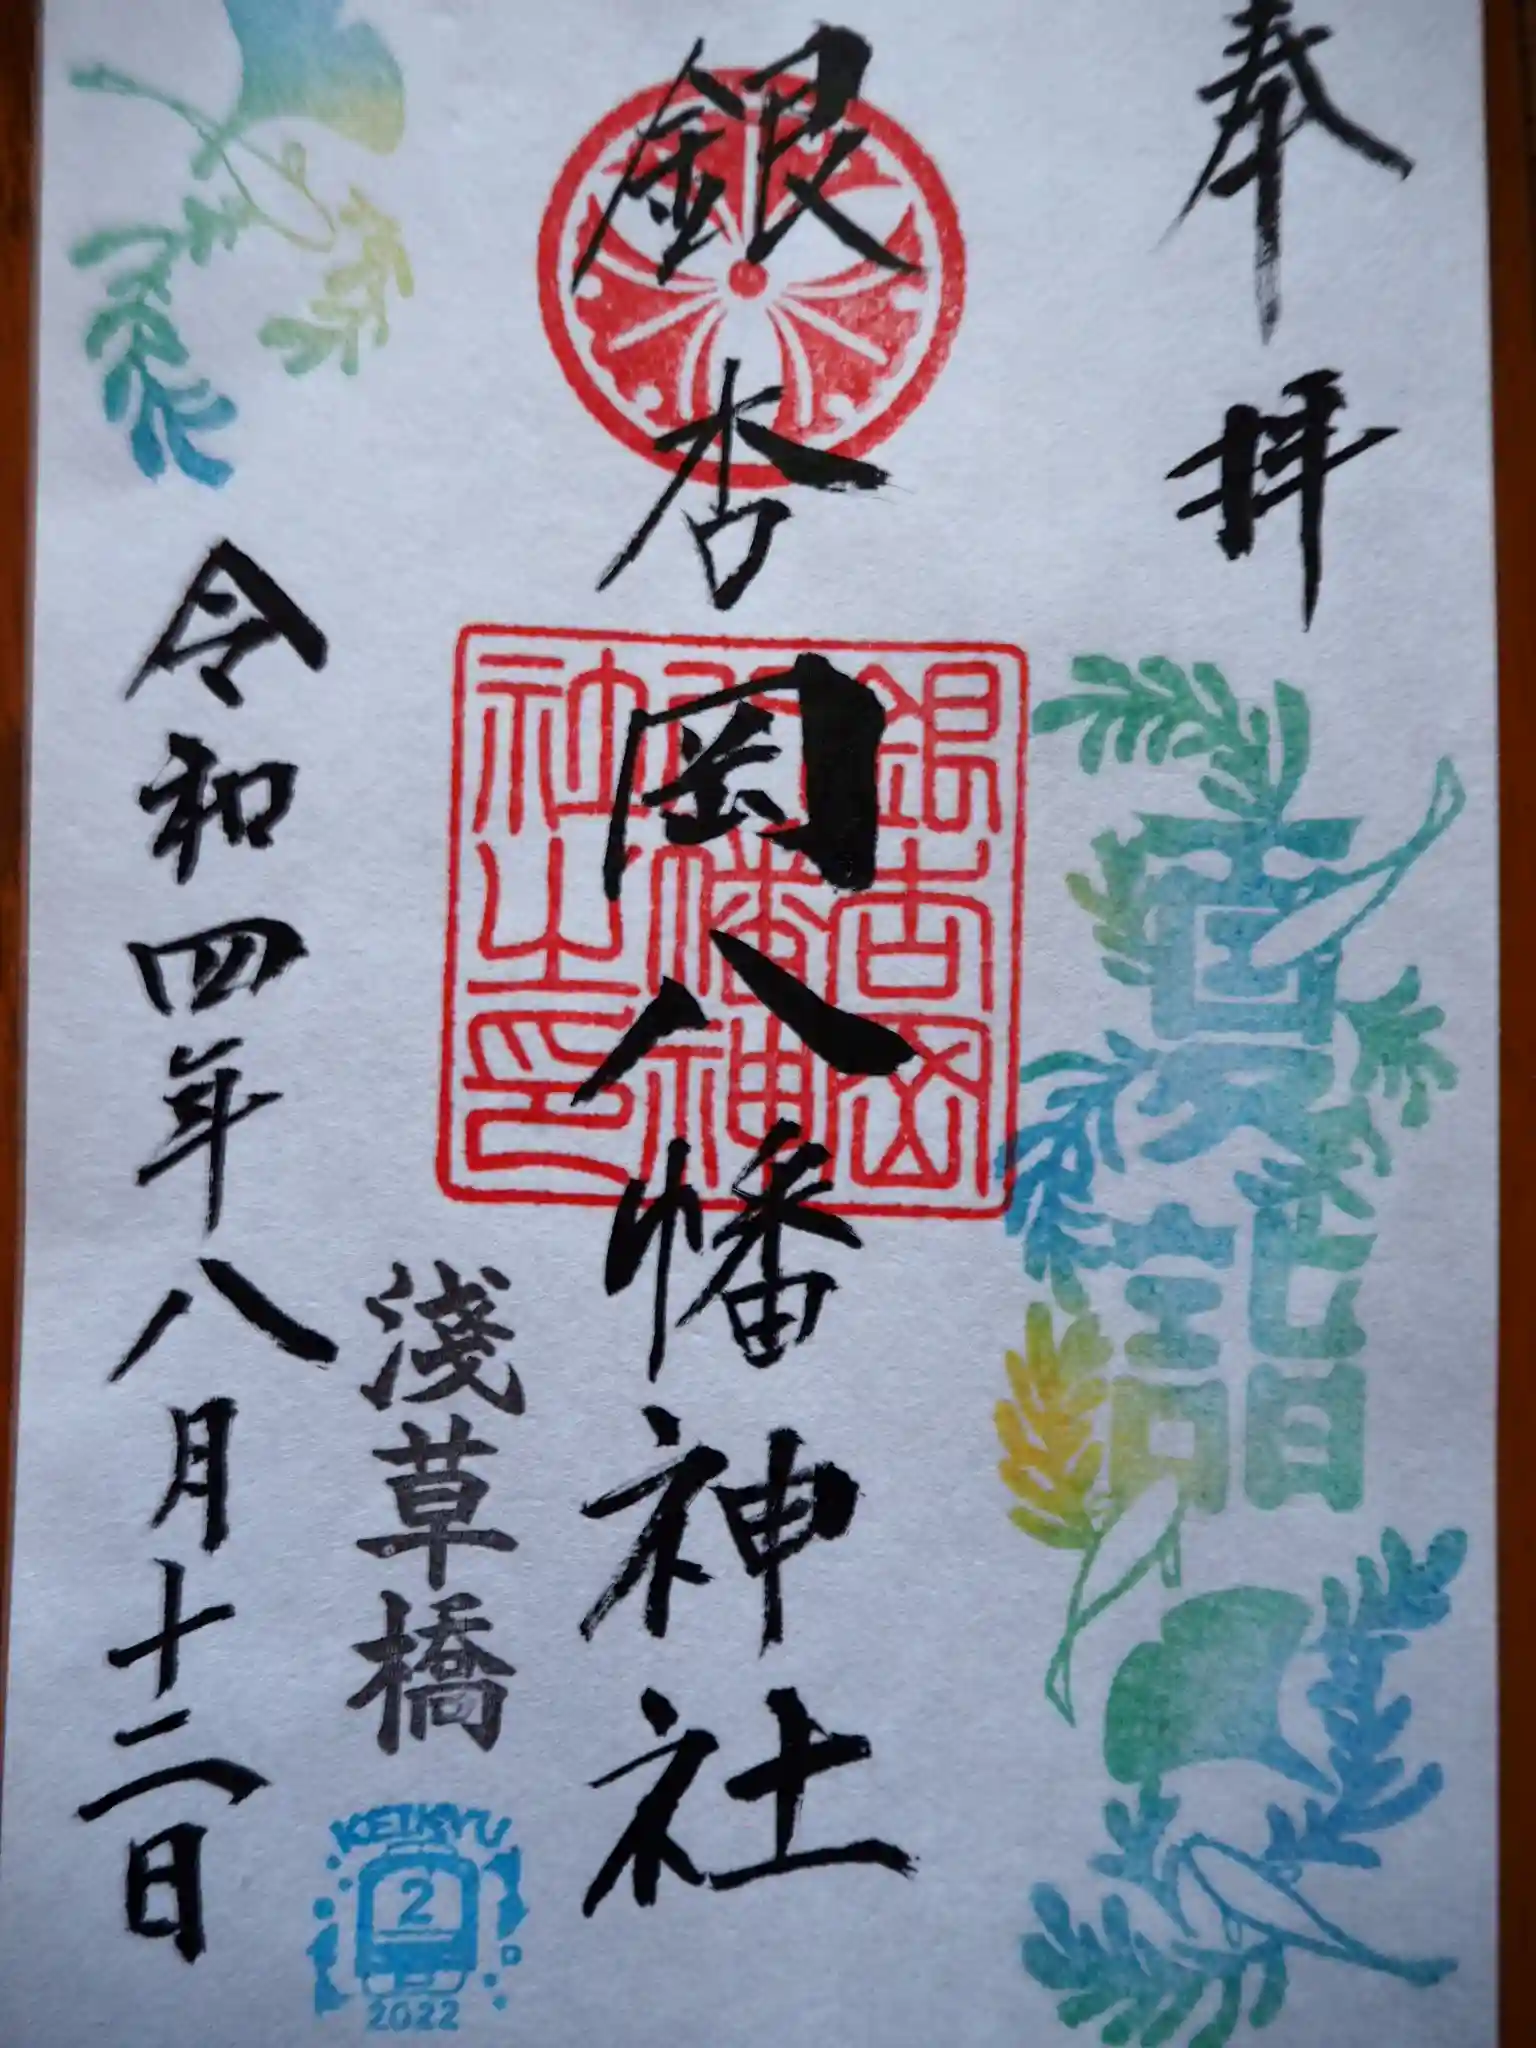 奉拝
夏詣
銀杏岡八幡神社
銀杏岡
八幡神
社之印
浅草橋
令和四年八月十二日
KEIKYU
2
2022